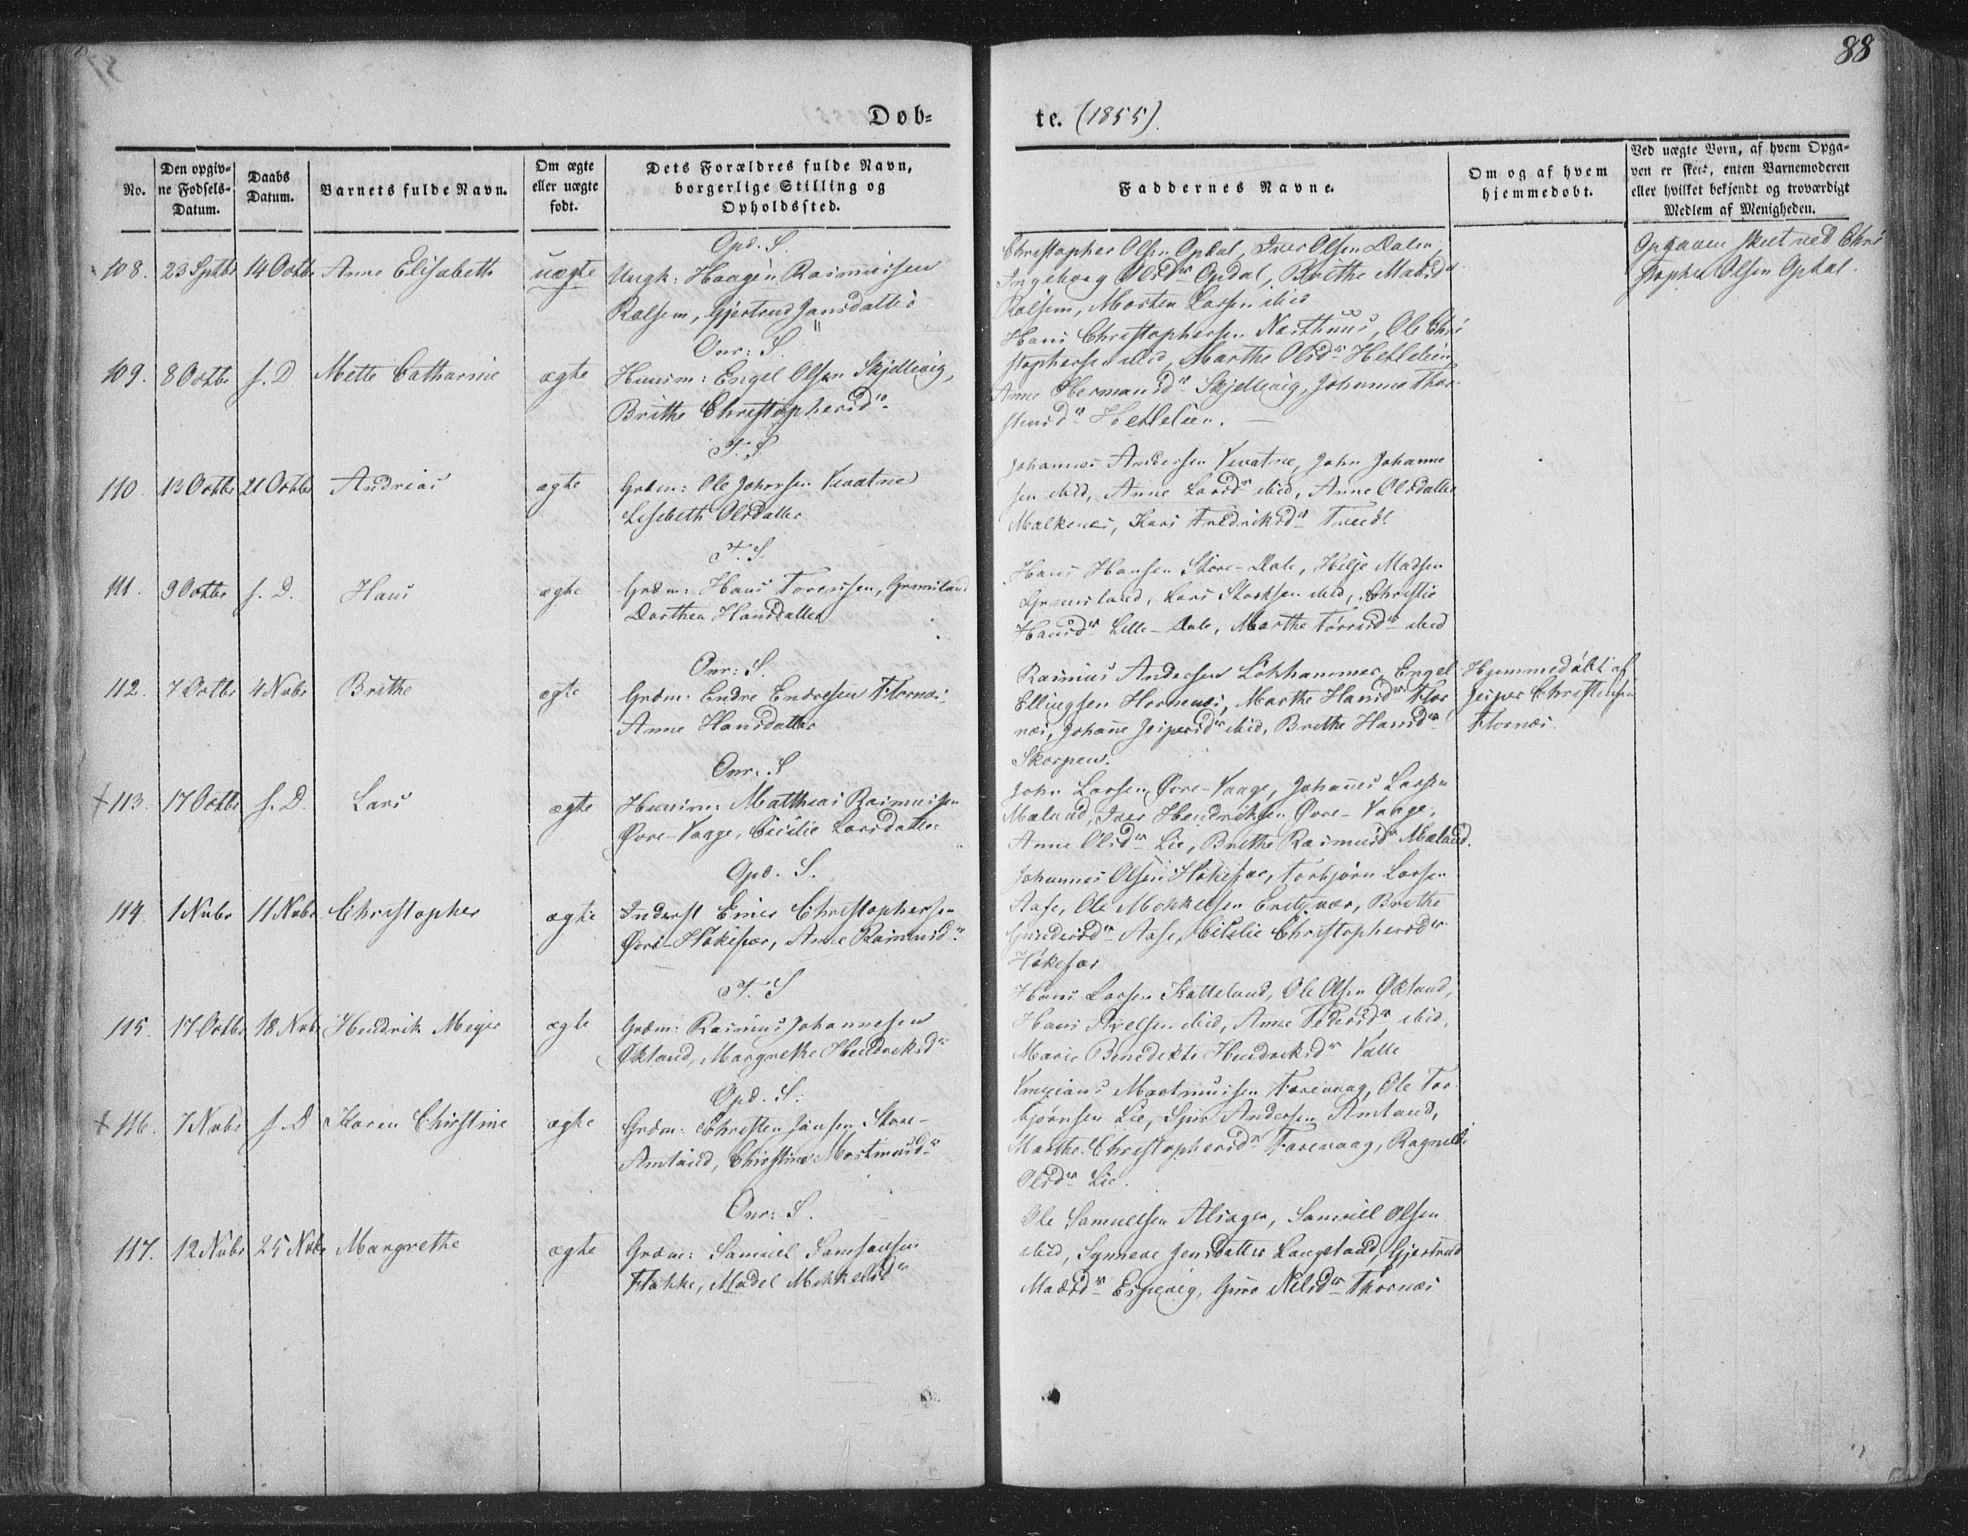 88
Døb=
te. (1855).
No.
Den opgiv-
ne Fødsels-
Datum.
Daabs
Datum.
Barnets fulde Navn.
Om ægte
eller uægte
født.
Dets Forældres fulde Navn,
borgerlige Stilling og
Opholdssted.
Faddernes Navne.
Om og af hvem
hjemmedøbt.
Ved uægte Børn, af hvem Opga-
ven er skeet, enten Barnemoderen
eller hvilket bekjendt og troværdigt
Medlem af Menigheden.
Opd. S.
108. 23 Sptbr 14 Octbr Anne Elisabeth uægte Ungk: Haagen Rasmussen
Rolsem, Gjertrud Jansdatter
Christopher Olsen Opdal, Iver Olsen Dalen,
Ingeborg Olsdr Opdal, Brithe Madsdr
Rolsem, Morten Larsen ibid
Opgaven skeet ved Chri
stopher Olsen Opdal.
Onr: S.
109. 8 Octbr s. D. Mette Catharine ægte Huusm: Engel Olsen Skjellevig,
Brithe Christophersdr
Hans Christophersen Næsthuus, Ole Chri
stophersen ibid, Marthe Olsdr Hetleleien
Anne Hermansdr Skjellevig, Johanne Thor-
stensdr Hetleleien.
T. S
110. 13 Octbr 21 Octbr Andreas ægte Grdm: Ole Johnsen Kvatnes
Lisebeth Olsdatter
Johannes Andersen Kvatne, John Johanne
sen ibid, Anne Larsdr ibid, Anne Olsdatter
Malkenes, Kari Fredriksdr Tveit
T. S.
111. 9 Octbr s. D. Hans ægte Grdm: Hans Toressen, Grimsland
Dorthea Hansdatter
Hans Hansen Store-Dale, Helje Madsen
Grimsland, Lars Larsen ibid, Christie
Hansdr Lille-Dale, Marthe Toresdr ibid
Onr: S.
112. 7 Octbr 4 Nvbr Brithe ægte Grdm: Endre Endresen Flornæs,
Anne Hansdatter
Rasmus Andersen Løkhammer, Engel
Ellingsen Hornenes, Marthe Hansdr Flor
næs, Johane Jespersdr ibid, Brithe Hansdr
Skorpen.
Hjemmedøbt af
Jesper Christensen
Flornæs.
Onr: S.
+113. 17 Octbr s. D. Lars ægte Huusm: Matthias Rasmussen
Øvre-Vaage, Cicilie Larsdatter
John Larsen Øvre-Vaage, Johannes Larsen
Mæland, Iver Hendriksen Øvre-Vaage,
Anne Olsdr Lie, Brithe Rasmusdr Mæland.
Opd. S.
114. 1 Nvbr 11 Nvbr Christopher ægte Inderst Einer Christophersen
Øvre-Høkesær, Anne Rasmusdr
Johannes Olsen Høkesær, Torbjørn Larsen
Aase, Ole Mikkelsen Engesær, Brithe
Gundersdr Aase, Cicilie Christophersdr
Høkesær
T. S
115. 17 Octbr 18 Nvbr Hendrik Meyer ægte Grdm: Rasmus Johannesen
Økland, Margrethe Hendriksdr
Hans Larsen Katteland, Ole Olsen Økland,
Hans Axelsen ibid, Anne Federsdr ibid,
Marie Benedikte Hendriksdr Valle
Opd. S.
+116. 7 Nvbr s. D Karen Christine ægte Grdm: Christen Jansen Store-
Amland, Christine Mortmusdr
Mortmussen Farevaag, Ole Tor
bjørnsen Lie, Sjur Andersen Amland,
Marthe Christophersdr Farevaag, Ragnilde
Olsdr Lie.
Onr: S.
117. 12 Nvbr 25 Nvbr Margrethe ægte Grdm: Samuel Samsonsen
Flokke, Madel Mikkelsdr
Ole Samuelsen Alsager, Samuel Olsen
ibid, Synneve Jensdatter Langeland, Gjertrud
Madsdr Espevig, Guro Nilsdr Thornæs